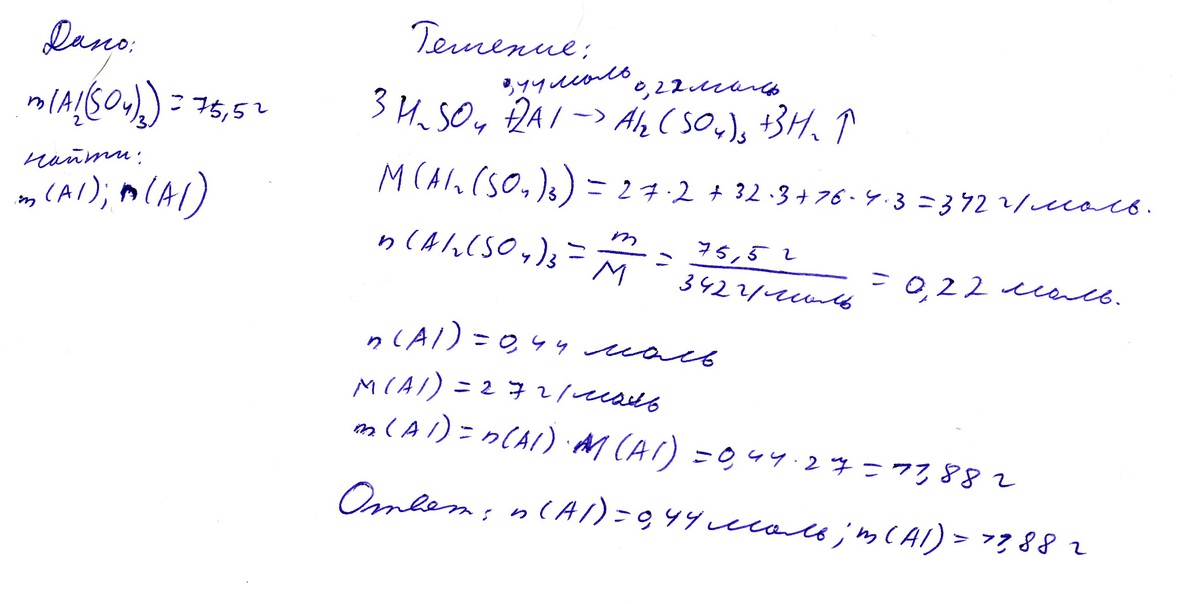 Дано:
m(Al₂(SO₄)₃) = 75,5 г
найти:
m(Al); n(Al)
Решение:
0,44 моль 0,22 моль
3H₂SO₄ + 2Al → Al₂(SO₄)₃ + 3H₂↑
M(Al₂(SO₄)₃) = 27·2 + 32·3 + 16·4·3 = 342 г/моль.
n(Al₂(SO₄)₃ = m/M = 75,5 г/342 г/моль = 0,22 моль.
n(Al) = 0,44 моль
M(Al) = 27 г/моль
m(Al) = n(Al)·M(Al) = 0,44·27 = 11,88 г
Ответ: n(Al) = 0,44 моль; m(Al) = 11,88 г